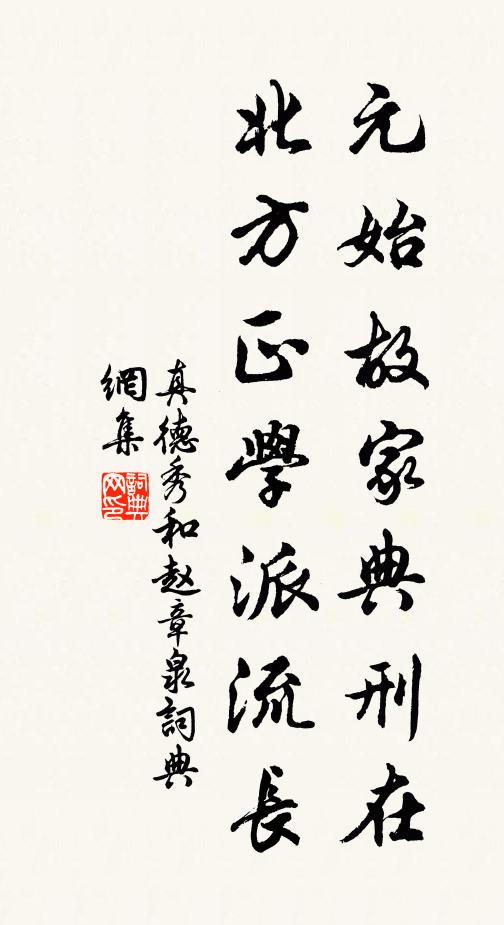 元始故家典刑在
北方正學派流長
真德秀和赵章泉詞典
網集
詞典
网印